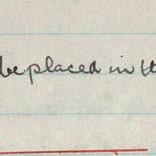 be placed in